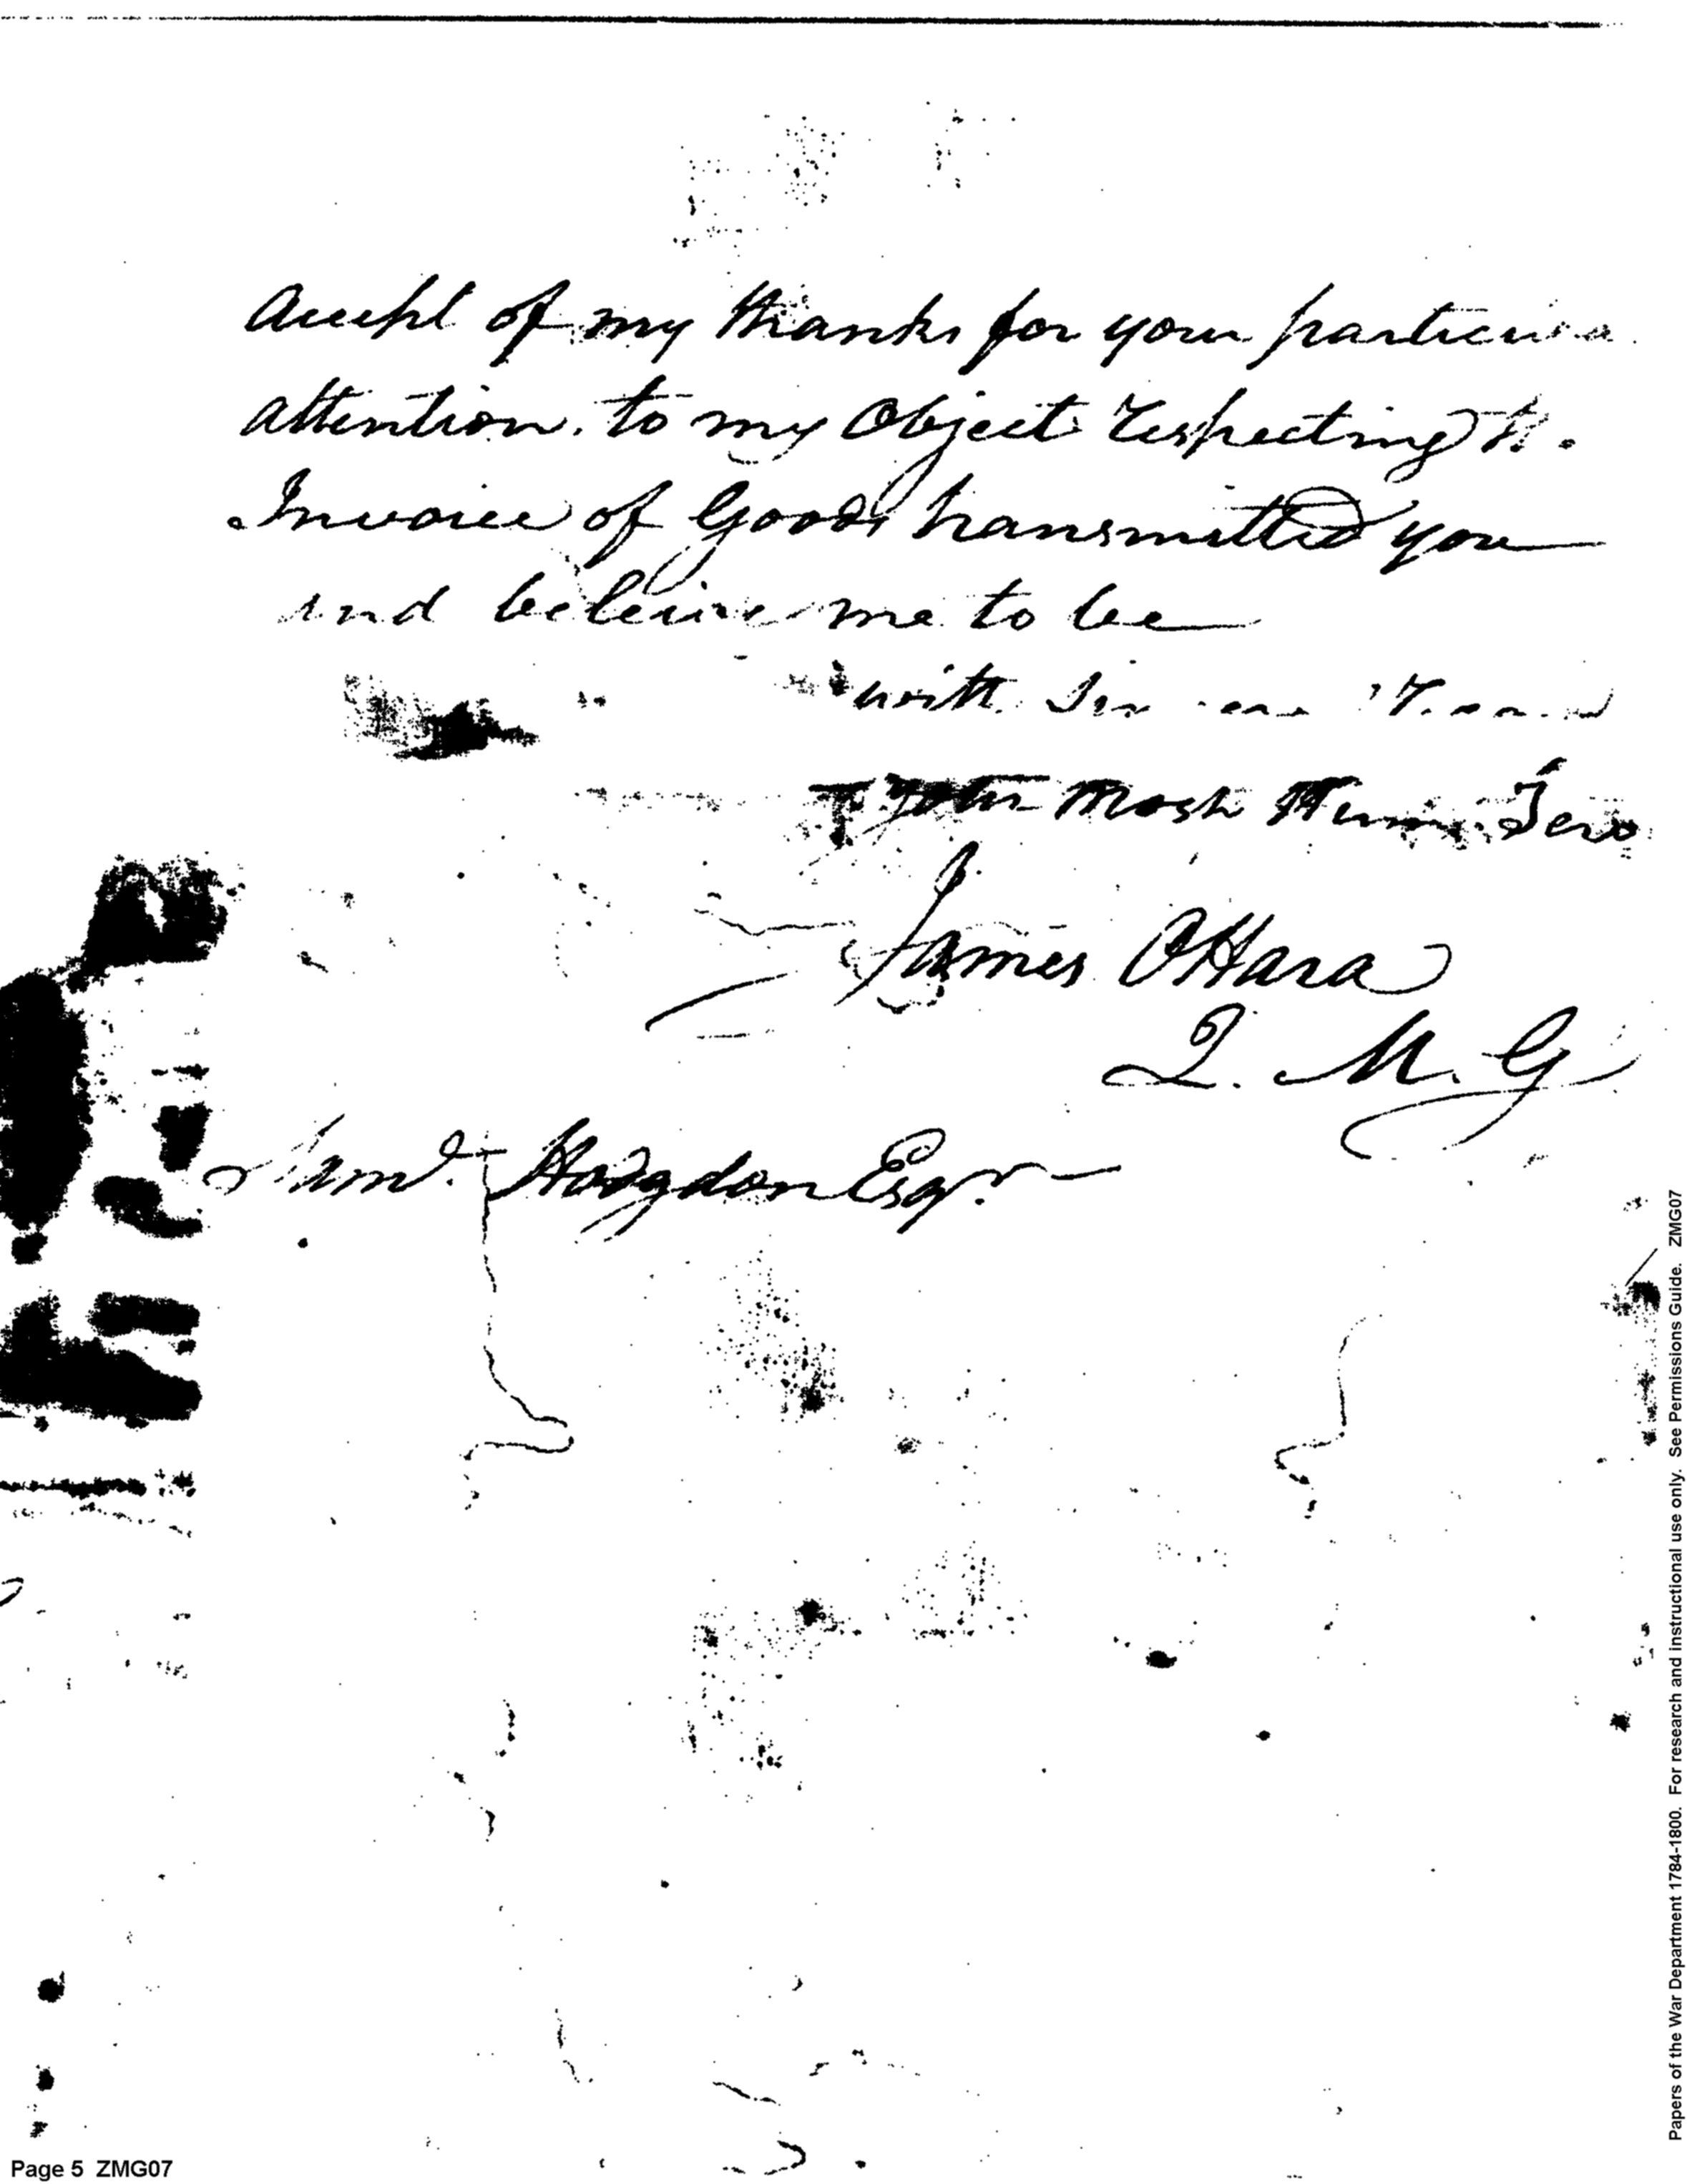 Accept of my thanks for your particula
attention. to my Object respecting th.
Invoice of Goods transmitted you
and beleive me to be
with Sincere Regard
your most Hum. Serv
James OHara
Q. M. G
Saml. Hodgdon Esqr.
Papers of the War Department 1784-1800. For research and instructional use only. See Permissions Guide. ZMG07
Page 5 ZMG07